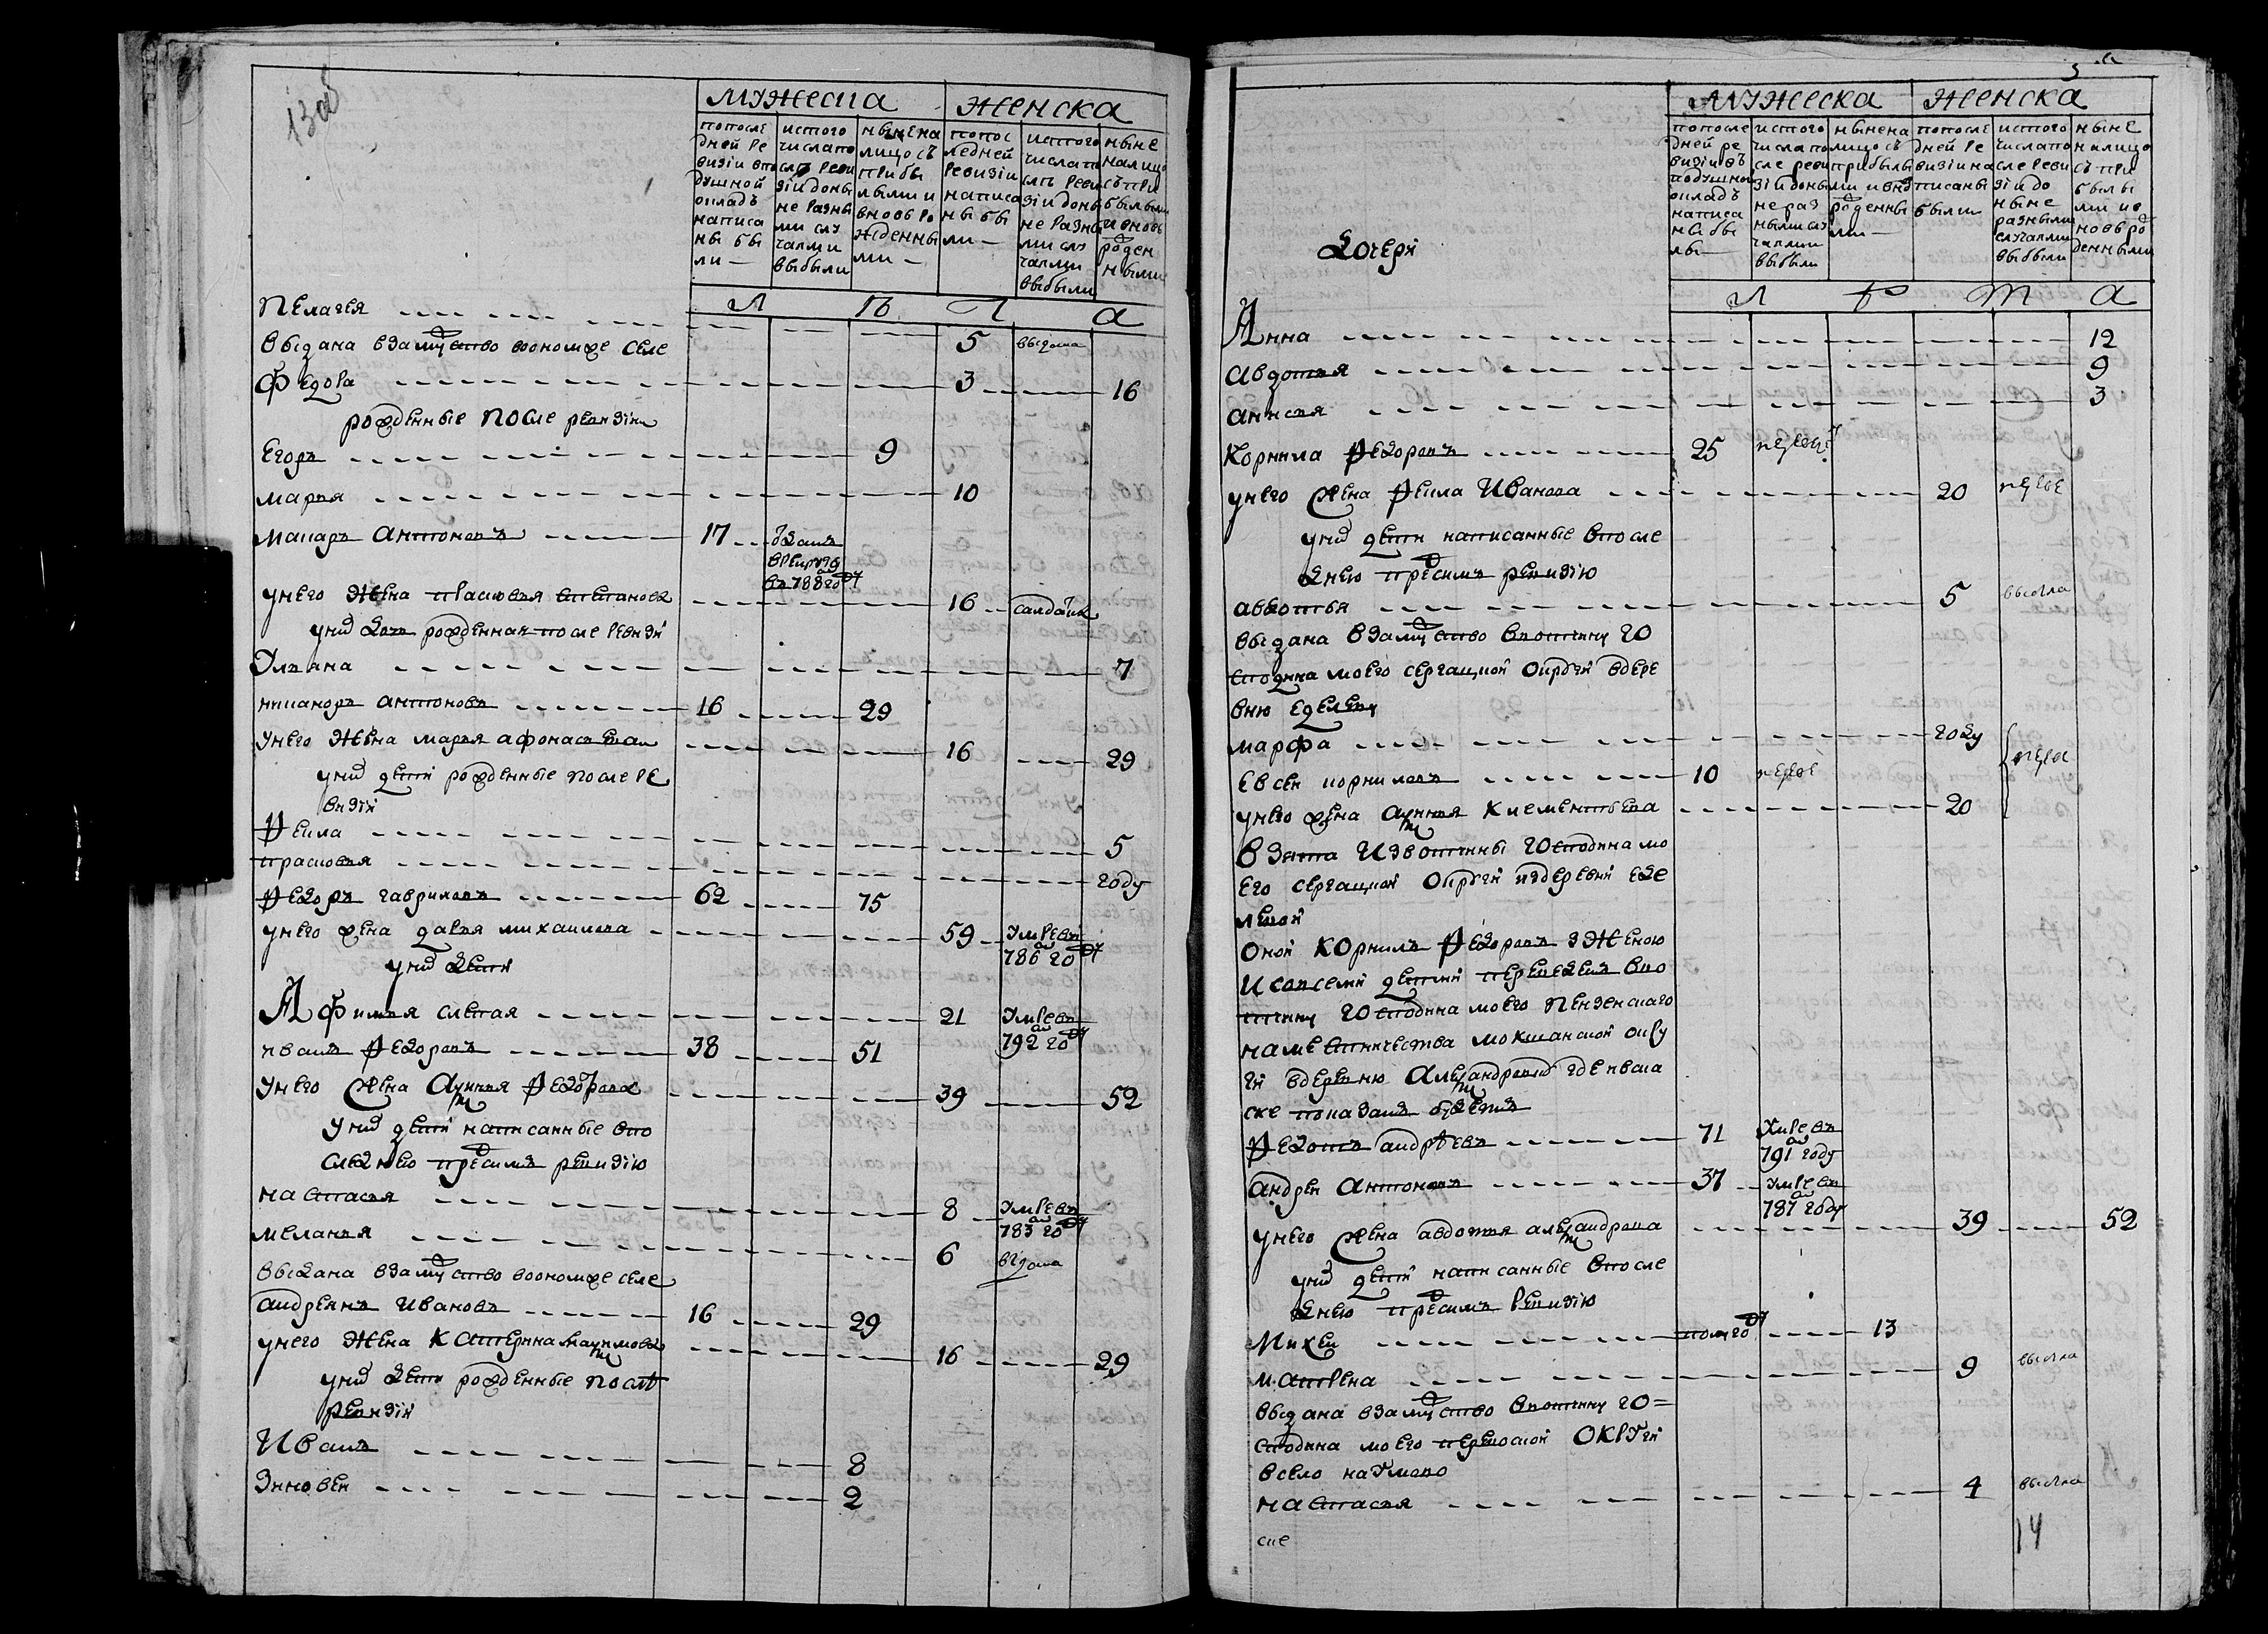 13об
мужеска женска
попосле дней ревизии вподушной оклад написаны были —
истого числа после ревизiи доныне разными случаями выбыли
ныне налицо съ прибылыми и вновь рожденными —
попоследней ревизiи написаны были —
истого числа после ревизiи доныне разными случаями выбыли
ныне налицо съ прибылыми и вновь рожденными
Л Ѣ Т а
Пелагея
выдана взамужство воономже селе 5 выдана
Федора 3 16
рожденные после ревизiи
Егоръ 9
марья 10
макаръ антоновъ 17 вданъ врекруты въ 788 году
унего жена прасковья степанова 16 салдатка
унихъ дочь рожденная после ревизiи
Ульяна 7
никаноръ антоновъ 16 29
унего жена марья афонасьева 16 29
унихъ дети рожденные после ре
визiи
Фекла 5
прасковья году
Федоръ гавриловъ 62 75
унего жена дарья михаилова 59 умре въ 786 году
унихъ дети
Афимья слепая 21 умре въ 792 году
иванъ Федоровъ 38 51
унего жена Аксинья Федорова 39 52
унихъ дети написанные впо
следнею предсимъ ревизiю
настасья 8 умре въ 783 году
меланья 6 выдана
выдана взамужство воономже селе
андреянъ Ивановъ 16 29
унего жена Катерина максимова 16 29
унихъ дети рожденные послѣ
ревизiи
Иванъ 8
Зиновеи 2
мужеска женска
попоследней ревизiи въ подушной окладъ написаны были —
истого числа после ревизiи доныне разными случаями выбыли
ныне налицо съ прибылыми и вновь рожденными —
попоследней ревизiи написаны были
истого числа после ревизiи доныне разными случаями выбыли
ныне налицо съ прибылыми и вновь рожденными
Дочери
Л Ѣ Т а
Анна 12
Авдотья 9
анисья 3
Корнила Федоровъ 25 переве
унего жена Фекла Иванова 20 переве
унихъ дети написанные впосле
днею предсимъ ревизiю
авдотья 5 выдана
выдана взамужство ввотчину го
сподина моего сергацкой округи вдере
вню еделеву
марфа году переве
Евсеи корниловъ 10 переве
унего жена Аксинья Клементьева 20
Взята Извотчины Господина мо
его сергацкой Округи издеревни еде
левой
Оной Корнилъ Федоровъ зженою
и совсеми детми переведенъ вво
тчину Господина моего Пензенскаго
наместничества мокшанской окру
ги вдеревню Александровку где ивска
ске показанъ будетъ
Федотъ андрѣевъ 71 умре въ 791 году
андреи Антоновъ 37 умре въ 787 году
унего жена авдотья александрова 39 52
унихъ дети написанные впосле
днею предсимъ ревизiю
Михеи полугоду 13
матрена 9 выдана
выдана взамужство ввотчину го=
сподина моего округи
всело наумово
настасья 4 выдана
сие 14